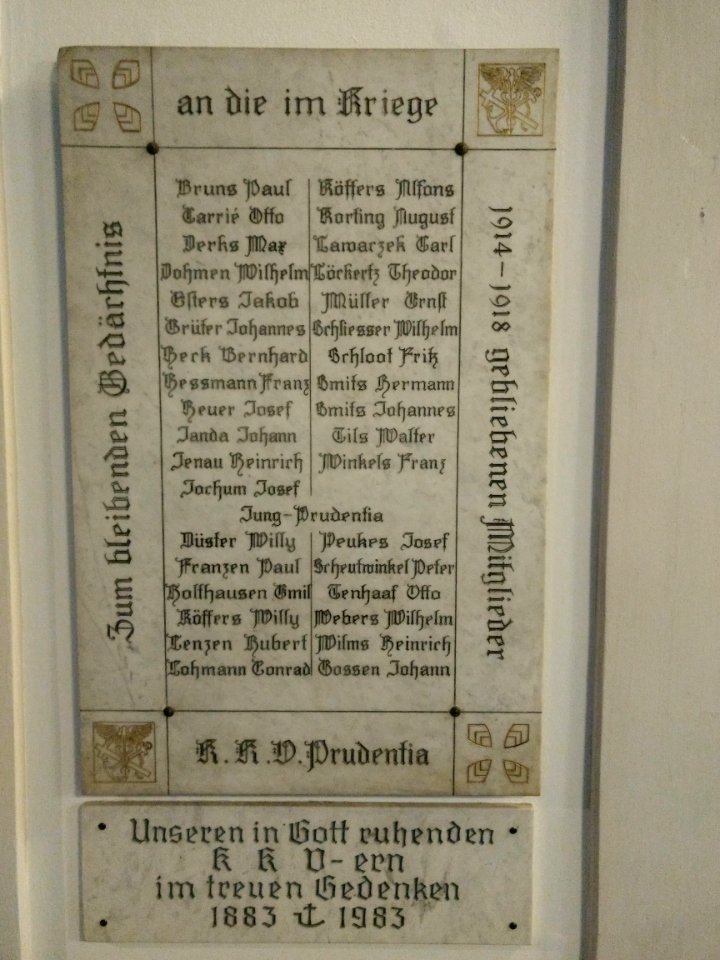 Zum bleibenden Gedächtnis
an die im Kriege
1914-1918 gebliebenen Mitglieder
Bruns Paul
Carrié Otto
Derks Max
Dohmen Wilhelm
Esters Jakob
Grüter Johannes
Heck Bernhard
Hessmann Franz
Heuer Josef
Janda Johann
Jenau Heinrich
Jochum Josef
Köffers Alfons
Korting August
Lawaczek Carl
Löckertz Theodor
Müller Ernst
Schliesser Wilhelm
Schloot Fritz
Smits Hermann
Smits Johannes
Tils Walter
Winkels Franz
Jung-Prudentia
Düster Willy
Franzen Paul
Holthausen Emil
Köffers Willy
Lenzen Hubert
Lohmann Conrad
Peukes Josef
Scheutwinkel Peter
Tenhaaf Otto
Webers Wilhelm
Wilms Heinrich
Gossen Johann
K.K.V. Prudentia
Unseren in Gott ruhenden
K K V-ern
im treuen Gedenken
1883 1983